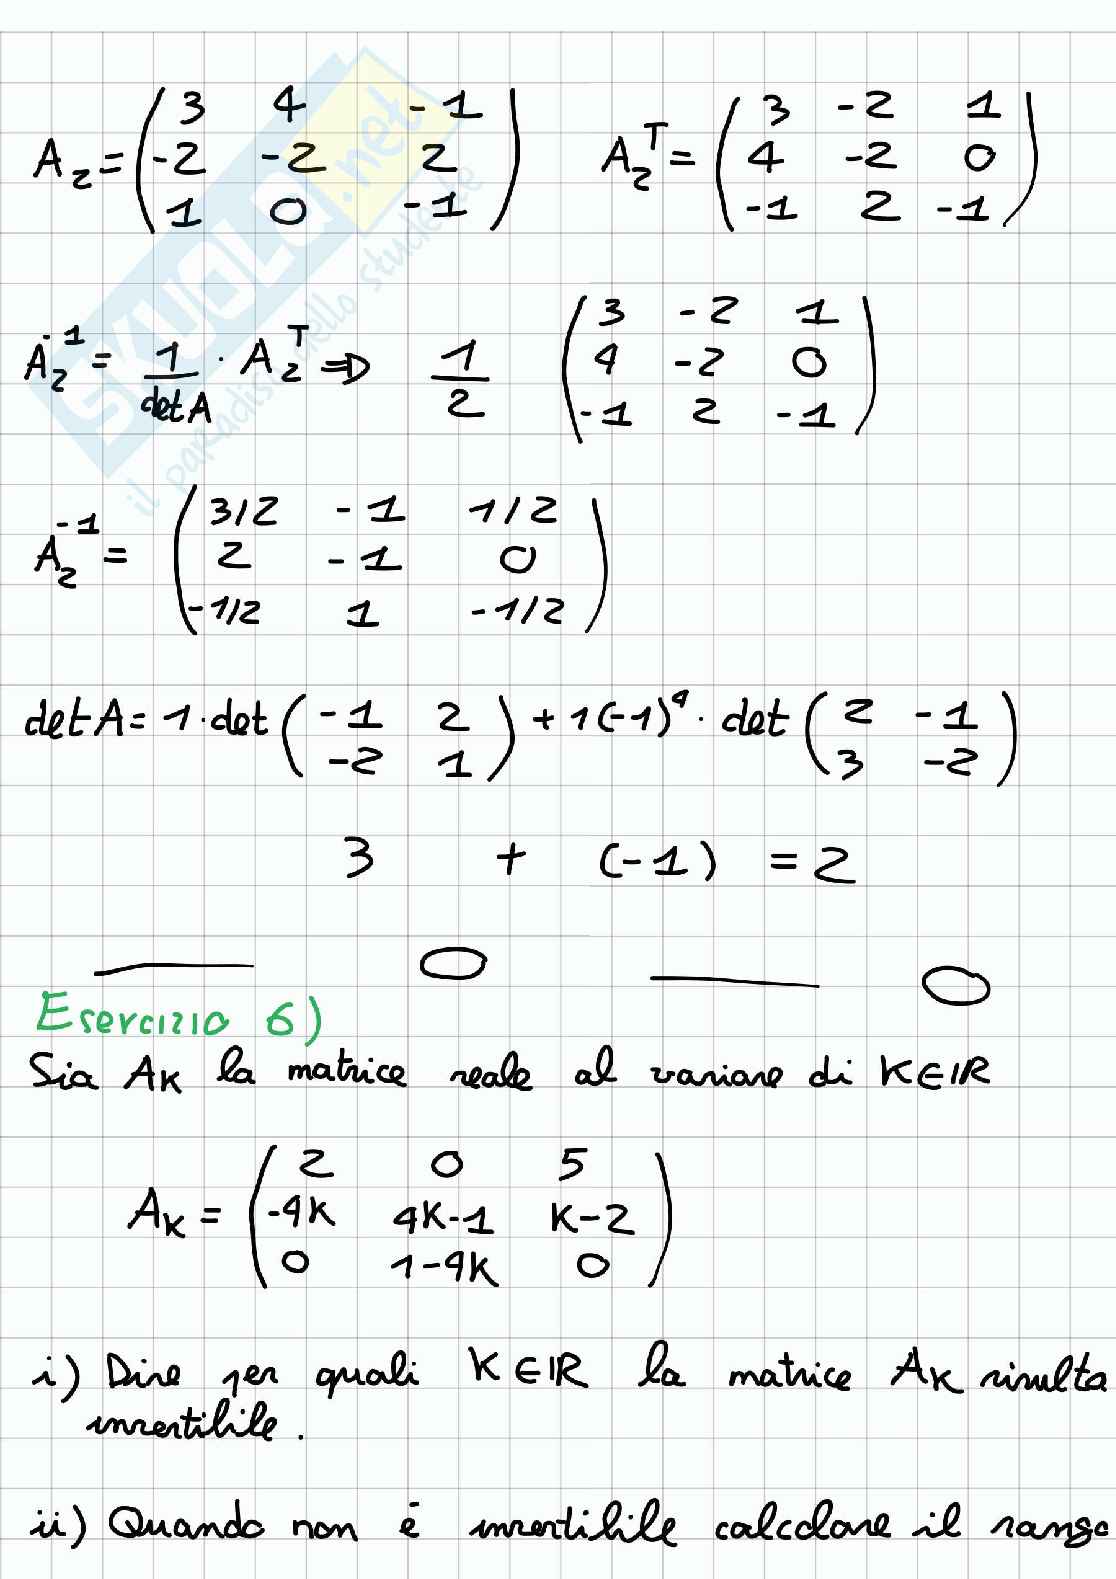 A₂ = ( 3 4 -1 ) A₂ᵀ = ( 3 -2 1 )
( -2 -2 2 ) ( 4 -2 0 )
( 1 0 -1 ) ( -1 2 -1 )
A₂⁻¹ = 1/detA · A₂ᵀ ⇒ 1/2 ( 3 -2 1 )
( 4 -2 0 )
( -1 2 -1 )
A₂⁻¹ = ( 3/2 -1 1/2 )
( 2 -1 0 )
( -1/2 1 -1/2 )
detA = 1·det ( -1 2 ) + 1(-1)⁴ · det ( 2 -1 )
( -2 1 ) ( 3 -2 )
3 + (-1) = 2
Esercizio 6)
Sia AK la matrice reale al variare di K∈IR
AK = ( 2 0 5 )
( -4K 4K-1 K-2 )
( 0 1-4K 0 )
i) Dire per quali K∈IR la matrice AK risulta
invertibile.
ii) Quando non è invertibile calcolare il rango
SKUOLA.net
il paradiso dello studente